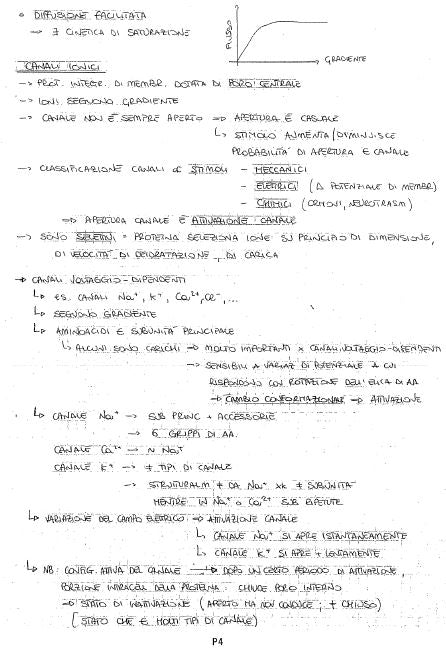 • DIFFUSIONE FACILITATA
→ ∃ CINETICA DI SATURAZIONE
FLUSSO
GRADIENTE
CANALI IONICI
→ PROT. INTEGR. DI MEMBR. DOTATA DI PORO CENTRALE
→ IONI SEGUONO GRADIENTE
→ CANALE NON È SEMPRE APERTO ⇒ APERTURA È CASUALE
↳ STIMOLO AUMENTA/DIMINUISCE
PROBABILITÀ DI APERTURA E CANALE
→ CLASSIFICAZIONE CANALI ∝ STIMOLI - MECCANICI
- ELETTRICI (Δ POTENZIALE DI MEMBR)
- CHIMICI (ORMONI, NEUROTRASM)
⇒ APERTURA CANALE È ATTIVAZIONE CANALE
→ SONO SELETTIVI = PROTEINA SELEZIONA IONE SU PRINCIPIO DI DIMENSIONE,
DI VELOCITÀ DI DEIDRATAZIONE, DI CARICA
→ CANALI VOLTAGGIO-DIPENDENTI
↳ ES. CANALI Na⁺, K⁺, Ca²⁺, Cl⁻, ...
↳ SEGUONO GRADIENTE
↳ AMINOACIDI E SUBUNITÀ PRINCIPALE
↳ ALCUNI SONO CARICHI → MOLTO IMPORTANTI x CANALI VOLTAGGIO-DIPENDENTI
→ SENSIBILI A VARIAZ DI POTENZIALE A CUI
RISPONDONO CON ROTAZIONE DELL'ELICA DI AA
→ CAMBIO CONFORMAZIONALE → ATTIVAZIONE
↳ CANALE Na⁺ → SUB PRINC + ACCESSORIE
→ 6 GRUPPI DI AA
CANALE Ca²⁺ → ~ Na⁺
CANALE K⁺ → ≠ TIPI DI CANALE
→ STRUTTURALM ≠ DA Na⁺ xk ≠ SUBUNITÀ
MENTRE IN Na⁺ O Ca²⁺ SUB RIPETUTE
↳ VARIAZIONE DEL CAMPO ELETTRICO → ATTIVAZIONE CANALE
↳ CANALE Na⁺ SI APRE ISTANTANEAMENTE
↳ CANALE K⁺ SI APRE + LENTAMENTE
↳ NB: CONFIG. ATTIVA DEL CANALE → DOPO UN CERTO PERIODO DI ATTIVAZIONE,
PORZIONE INTRACELL DELLA PROTEINA CHIUDE PORO INTERNO
→ STATO DI INATTIVAZIONE (APERTO MA NON CONDUCE ; ≠ CHIUSO)
[STATO CHE È MOLTI TIPI DI CANALE)
P4